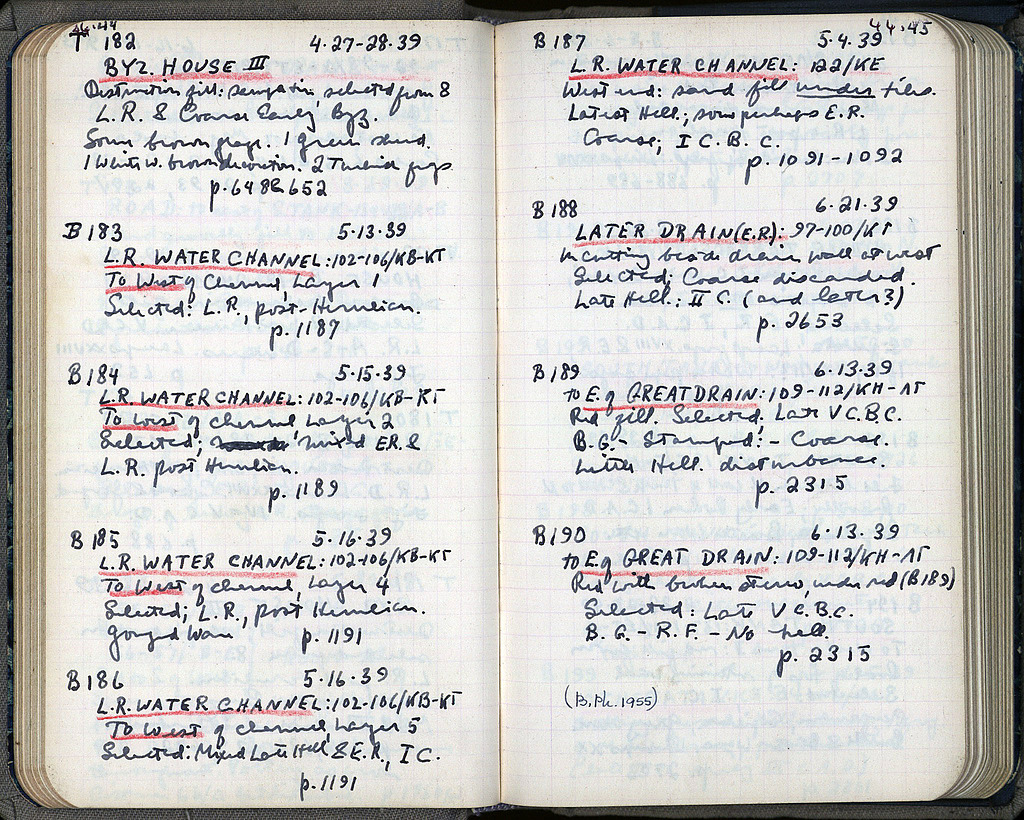 T 182 4.27-28.39
BYZ. HOUSE III
Destruction fill: selected from 8
L.R. & Coarse Early Byz.
Some brown glaze. 1 green
1 White w. brown decoration. 2
p. 648 & 652
B 183 5.13.39
L.R. WATER CHANNEL: 102-106/KB-KT
To West of Channel, Layer 1
Selected: L.R., post-Herulian.
p. 1187
B 184 5.15.39
L.R. WATER CHANNEL: 102-106/KB-KT
To West of channel Layer 2
Selected; mixed E.R. &
L.R. post Herulian.
p. 1189
B 185 5.16.39
L.R. WATER CHANNEL: 102-106/KB-KT
To West of channel, Layer 4
Selected; L.R., post Herulian.
Gouged Ware p. 1191
B 186 5.16.39
L.R. WATER CHANNEL: 102-106/KB-KT
To West of channel, Layer 5
Selected: Mixed Late Hell & E.R., I C.
p. 1191
44.45
B 187 5.4.39
L.R. WATER CHANNEL: 122/KE
West end: sand fill under tiles.
Latest Hell.; some perhaps E.R.
Coarse; I C. B. C.
p. 1091-1092
B 188 6.21.39
LATER DRAIN (E.R.): 97-100/KT
In cutting beside drain wall at west
Selected; Coarse discarded.
Late Hell.: II C. (and later?)
p. 2653
B 189 6.13.39
to E. of GREAT DRAIN: 109-112/KH-ΛΓ
Red fill. Selected; Late V C.B.C.
B.G. - Stamped: - Coarse.
Little Hell. disturbance.
p. 2315
B 190 6.13.39
to E. of GREAT DRAIN: 109-112/KH-ΛΓ
Red with broken stereo, under red (B 189)
Selected: Late V C.B.C.
B.G. - R.F. - No hell.
p. 2315
(B. Pk. 1955)